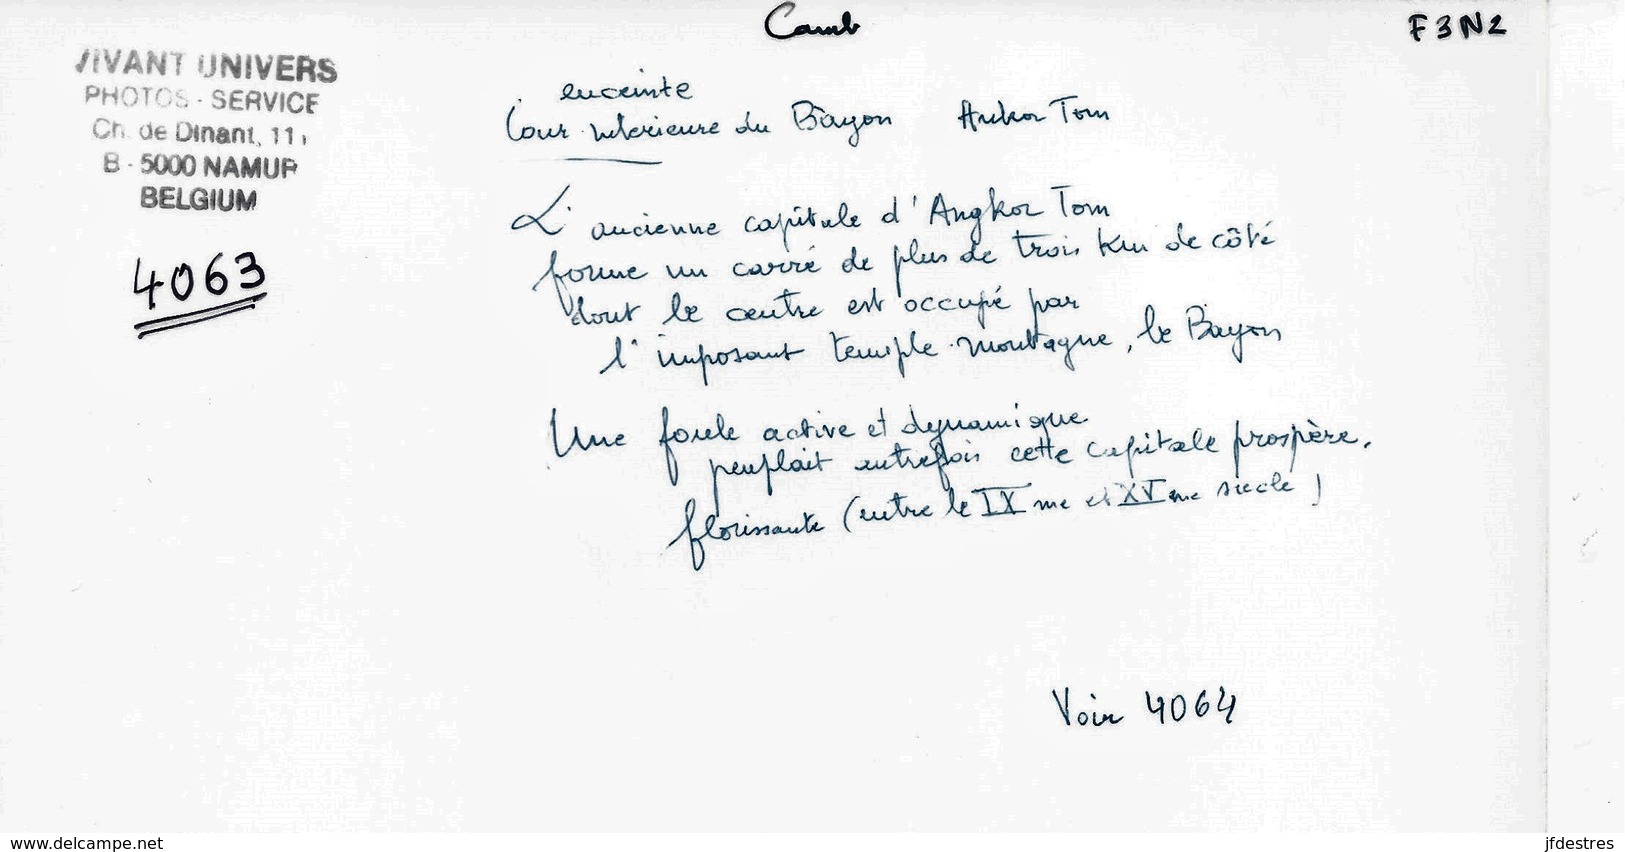 Camb
F3N2
VIVANT UNIVERS
PHOTOS - SERVICE
Ch. de Dinant, 11,
B - 5000 NAMUR
BELGIUM
4063
enceinte
Cour intérieure du Bayon Ankor Tom
L'ancienne capitale d'Angkor Tom
forme un carré de plus de trois km de côté
dont le centre est occupé par
l'imposant temple-montagne, le Bayon
Une foule active et dynamique
peuplait autrefois cette capitale prospère,
florissante (entre le IXme et XVme siècle)
Voir 4064
www.delcampe.net
jfdestres